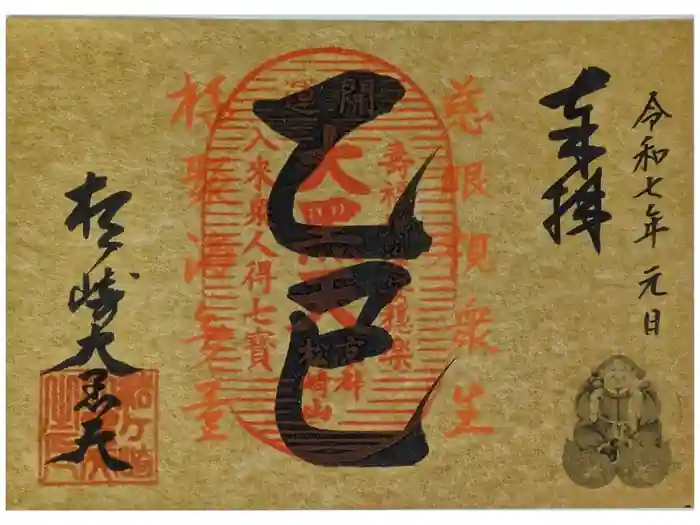 令和七年 元日
奉拝
慈眼視衆生
開運
大黒天
入来衆人得七寶
乙巳
福聚海無量
松ヶ崎大黒天